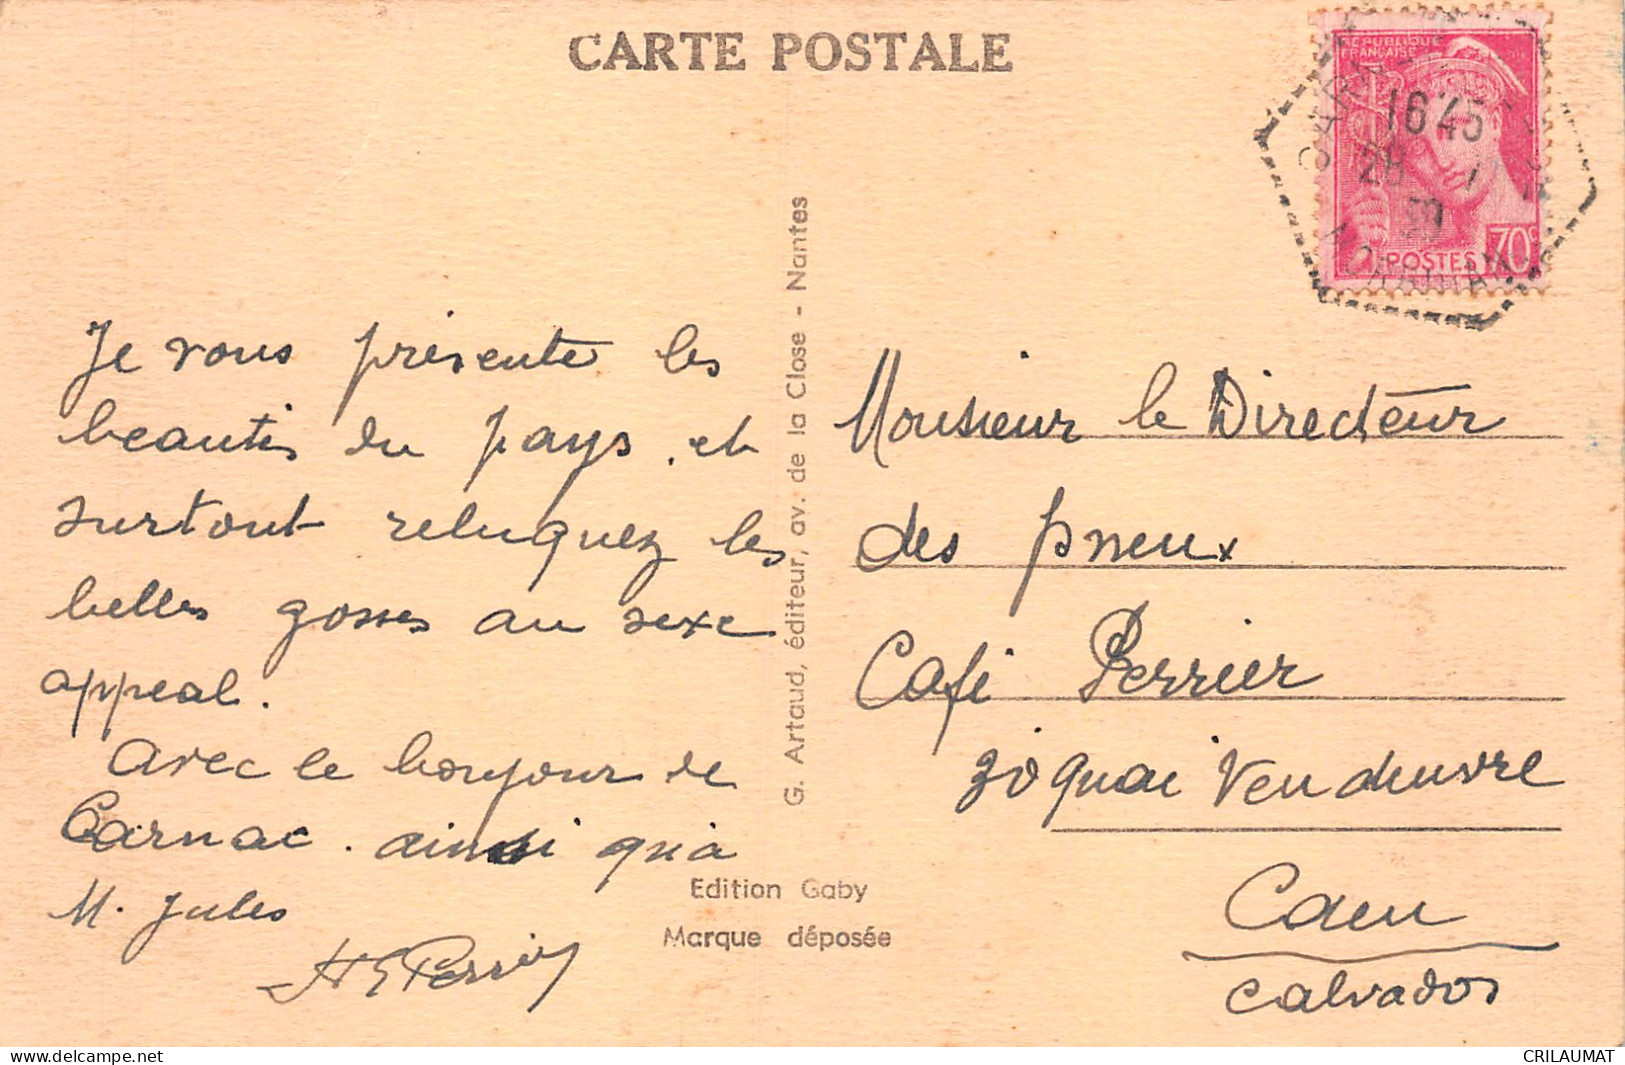 CARTE POSTALE
RÉPUBLIQUE
FRANÇAISE
16 45
28 7
39
POSTES 70c
MORBIHAN
Je vous présente les
beautés du pays. et
surtout reluquez les
belles gosses au sexe
appeal.
Avec le bonjour de
Carnac. ainsi qu'à
M. Jules
G. Artaud, éditeur, av. de la Close - Nantes
Edition Gaby
Marque déposée
Monsieur le Directeur
des pneux
Café Perrier
30 quai Vendeuvre
Caen
Calvados
www.delcampe.net
CRILAUMAT